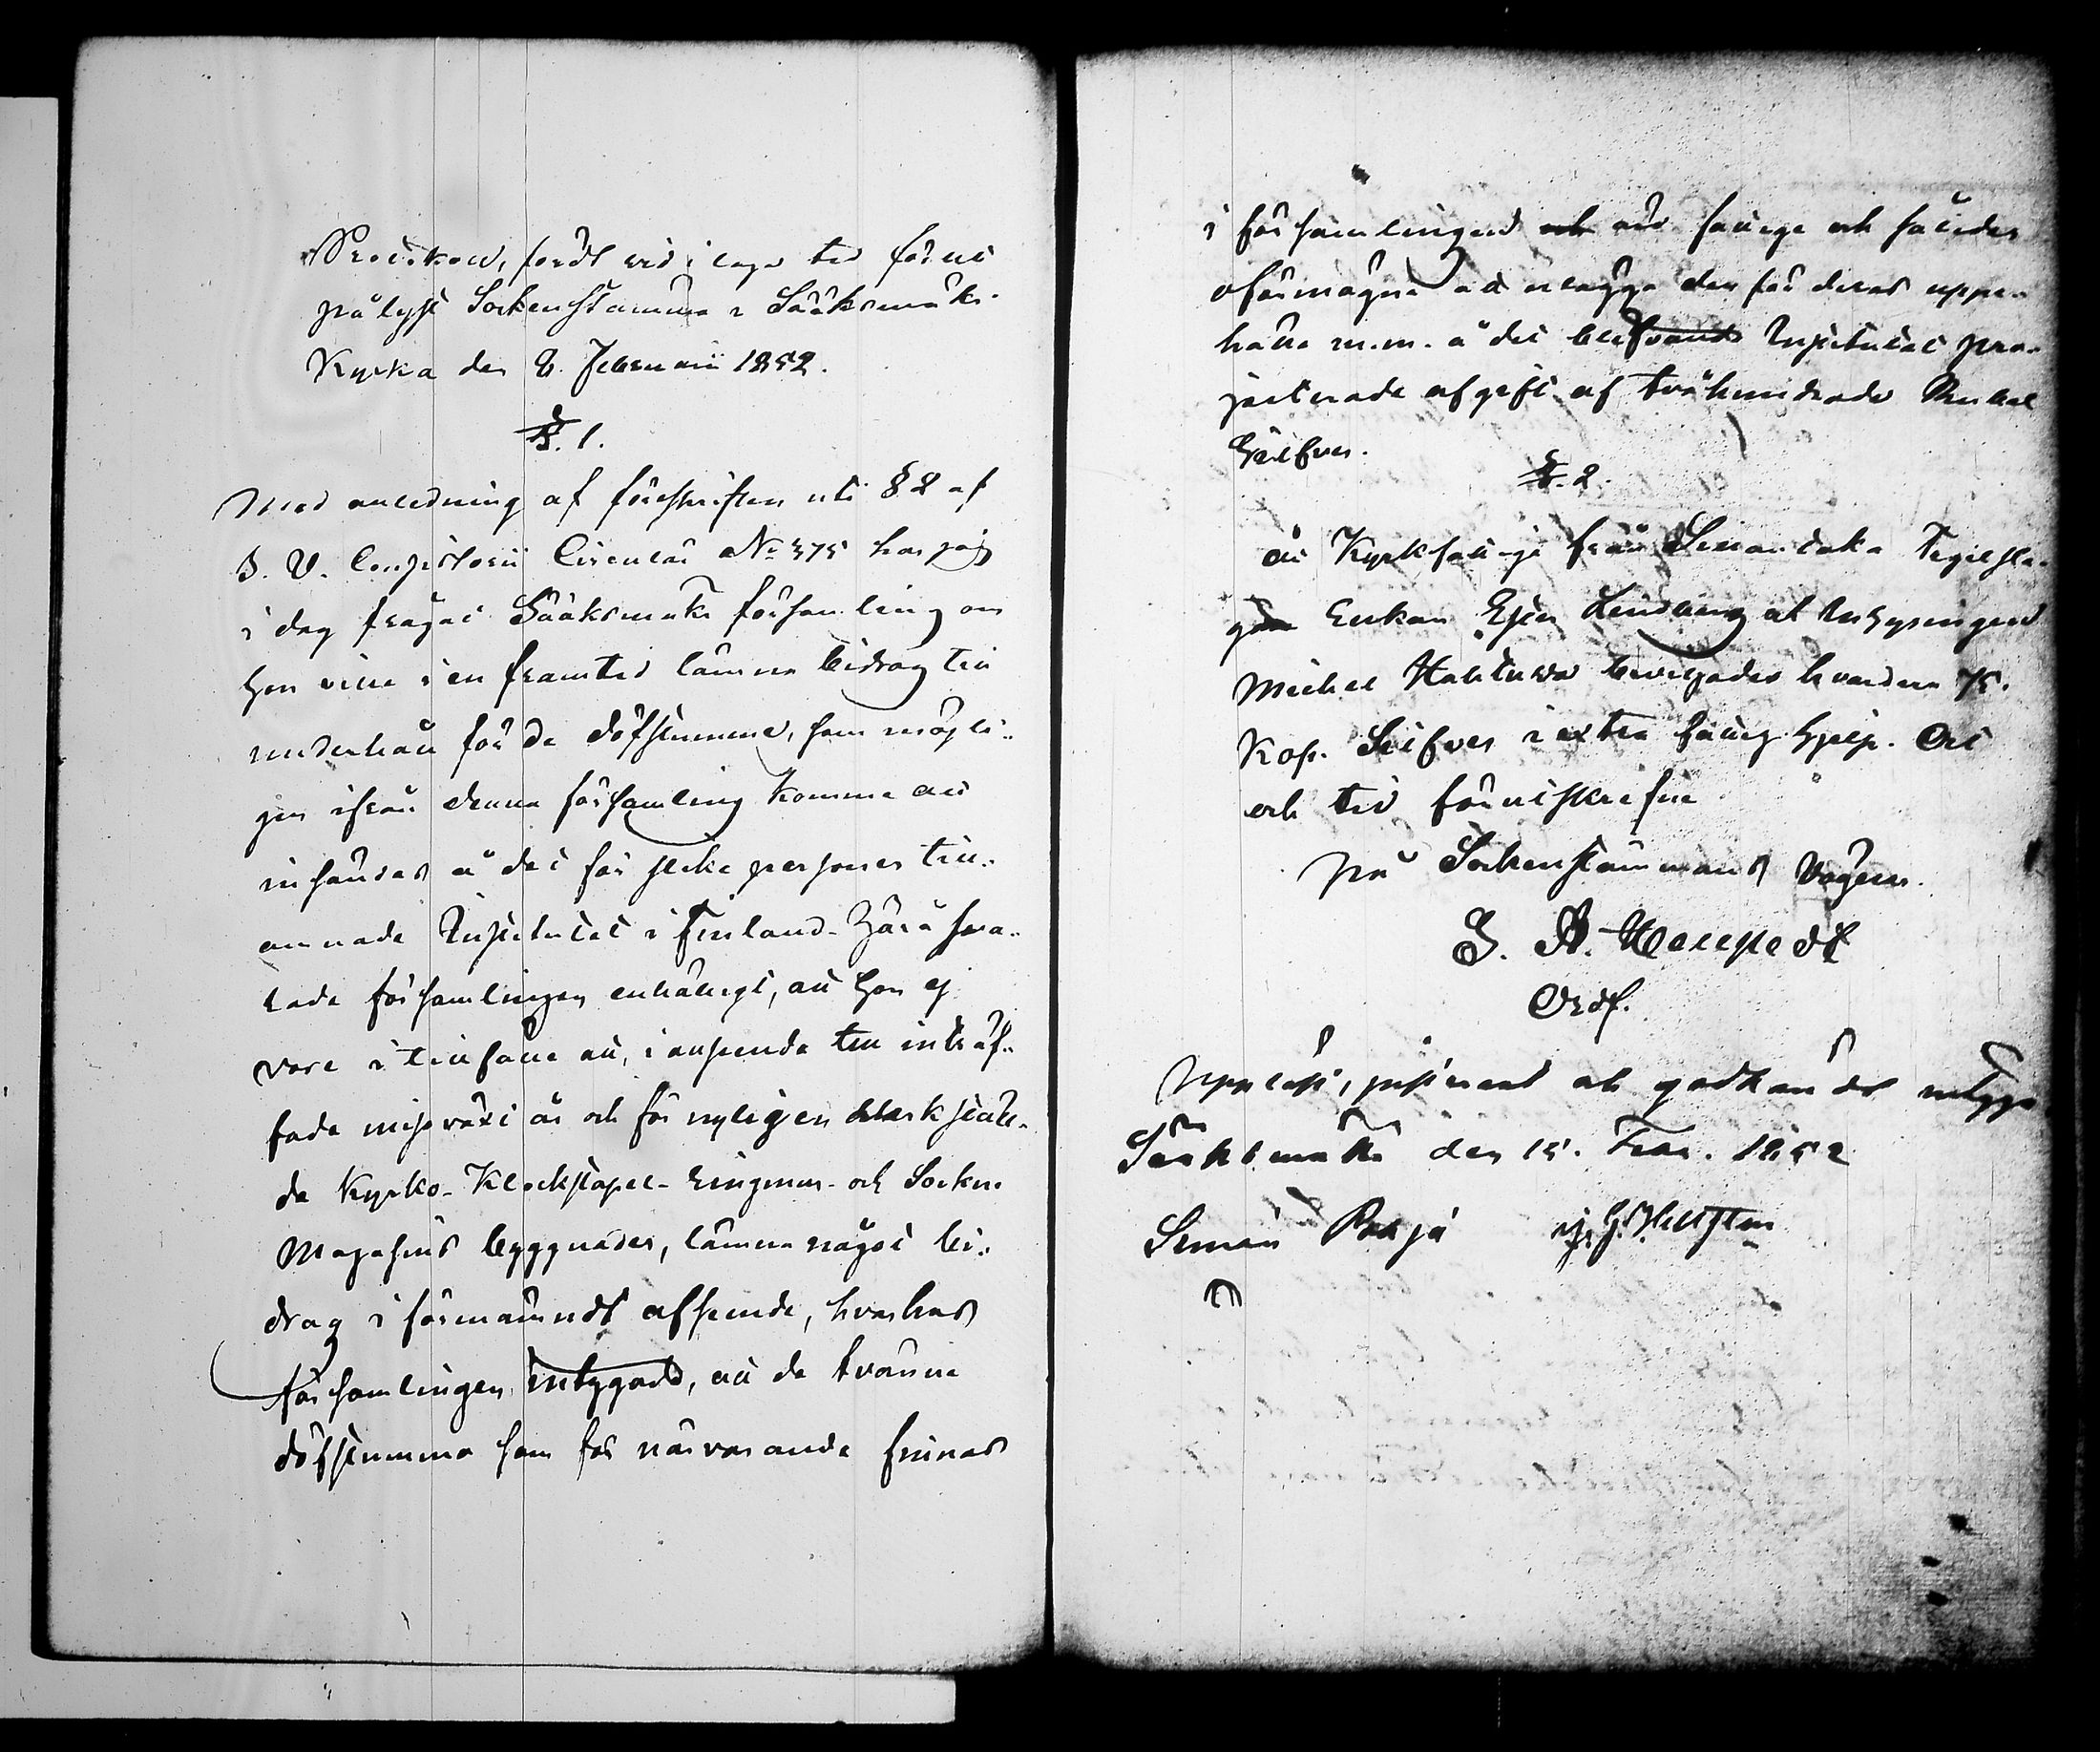 Protokoll, fördt vid i laga tid förut
pålyst Sockenstämma i Sääksmäki
Kyrka den 8. Februarii 1852.
§. 1.
Med anledning af föreskriften uti § 2 af
H. V. Consistorii Circulär No 375 har jag
i dag frågat Sääksmäki församling om
hon ville i en framtid lämna bidrag till
underhåll för de döfstumme, som möjli-
gen ifrån denna församling komma att
insändas å det för slike personer till-
ämnade Institutet i Finland. Härå sva-
rade församlingen enhälligt, att hon ej
vore i tillfälle att, i anseende till inträf-
fade missväxt år och för nyligen verkstäl-
da Kyrko- Klockstapel- Ringmur- och Socken
Magasins byggnader, lämna något bi-
drag i förmämndt afseende, hvarhos
församlingen intygade, att de tvänne
döfstumma som för närvarande finnas
i församlingen äro fattige och således
oförmögne att erlägga den för deras uppe-
hälle m.m. å det blifvande Institutet pro-
jecterade afgift af tvåhundrade Rubel
Silfver.
§. 2.
Åt Kyrkfattige från
Enkan Lindberg och Inhysingen
Michel beviljades hvardera 75.
Kop. Silfver i extra fattig hjelp. Ort
och tid förutskrefne
På Sockenstämmans Vägnar.
J. A. Hellstedt
Ordf.
Uppläst, justerad och godkändt intyga
Sääksmäki den 15. Febr. 1852
Simon Parja G. Hellsten